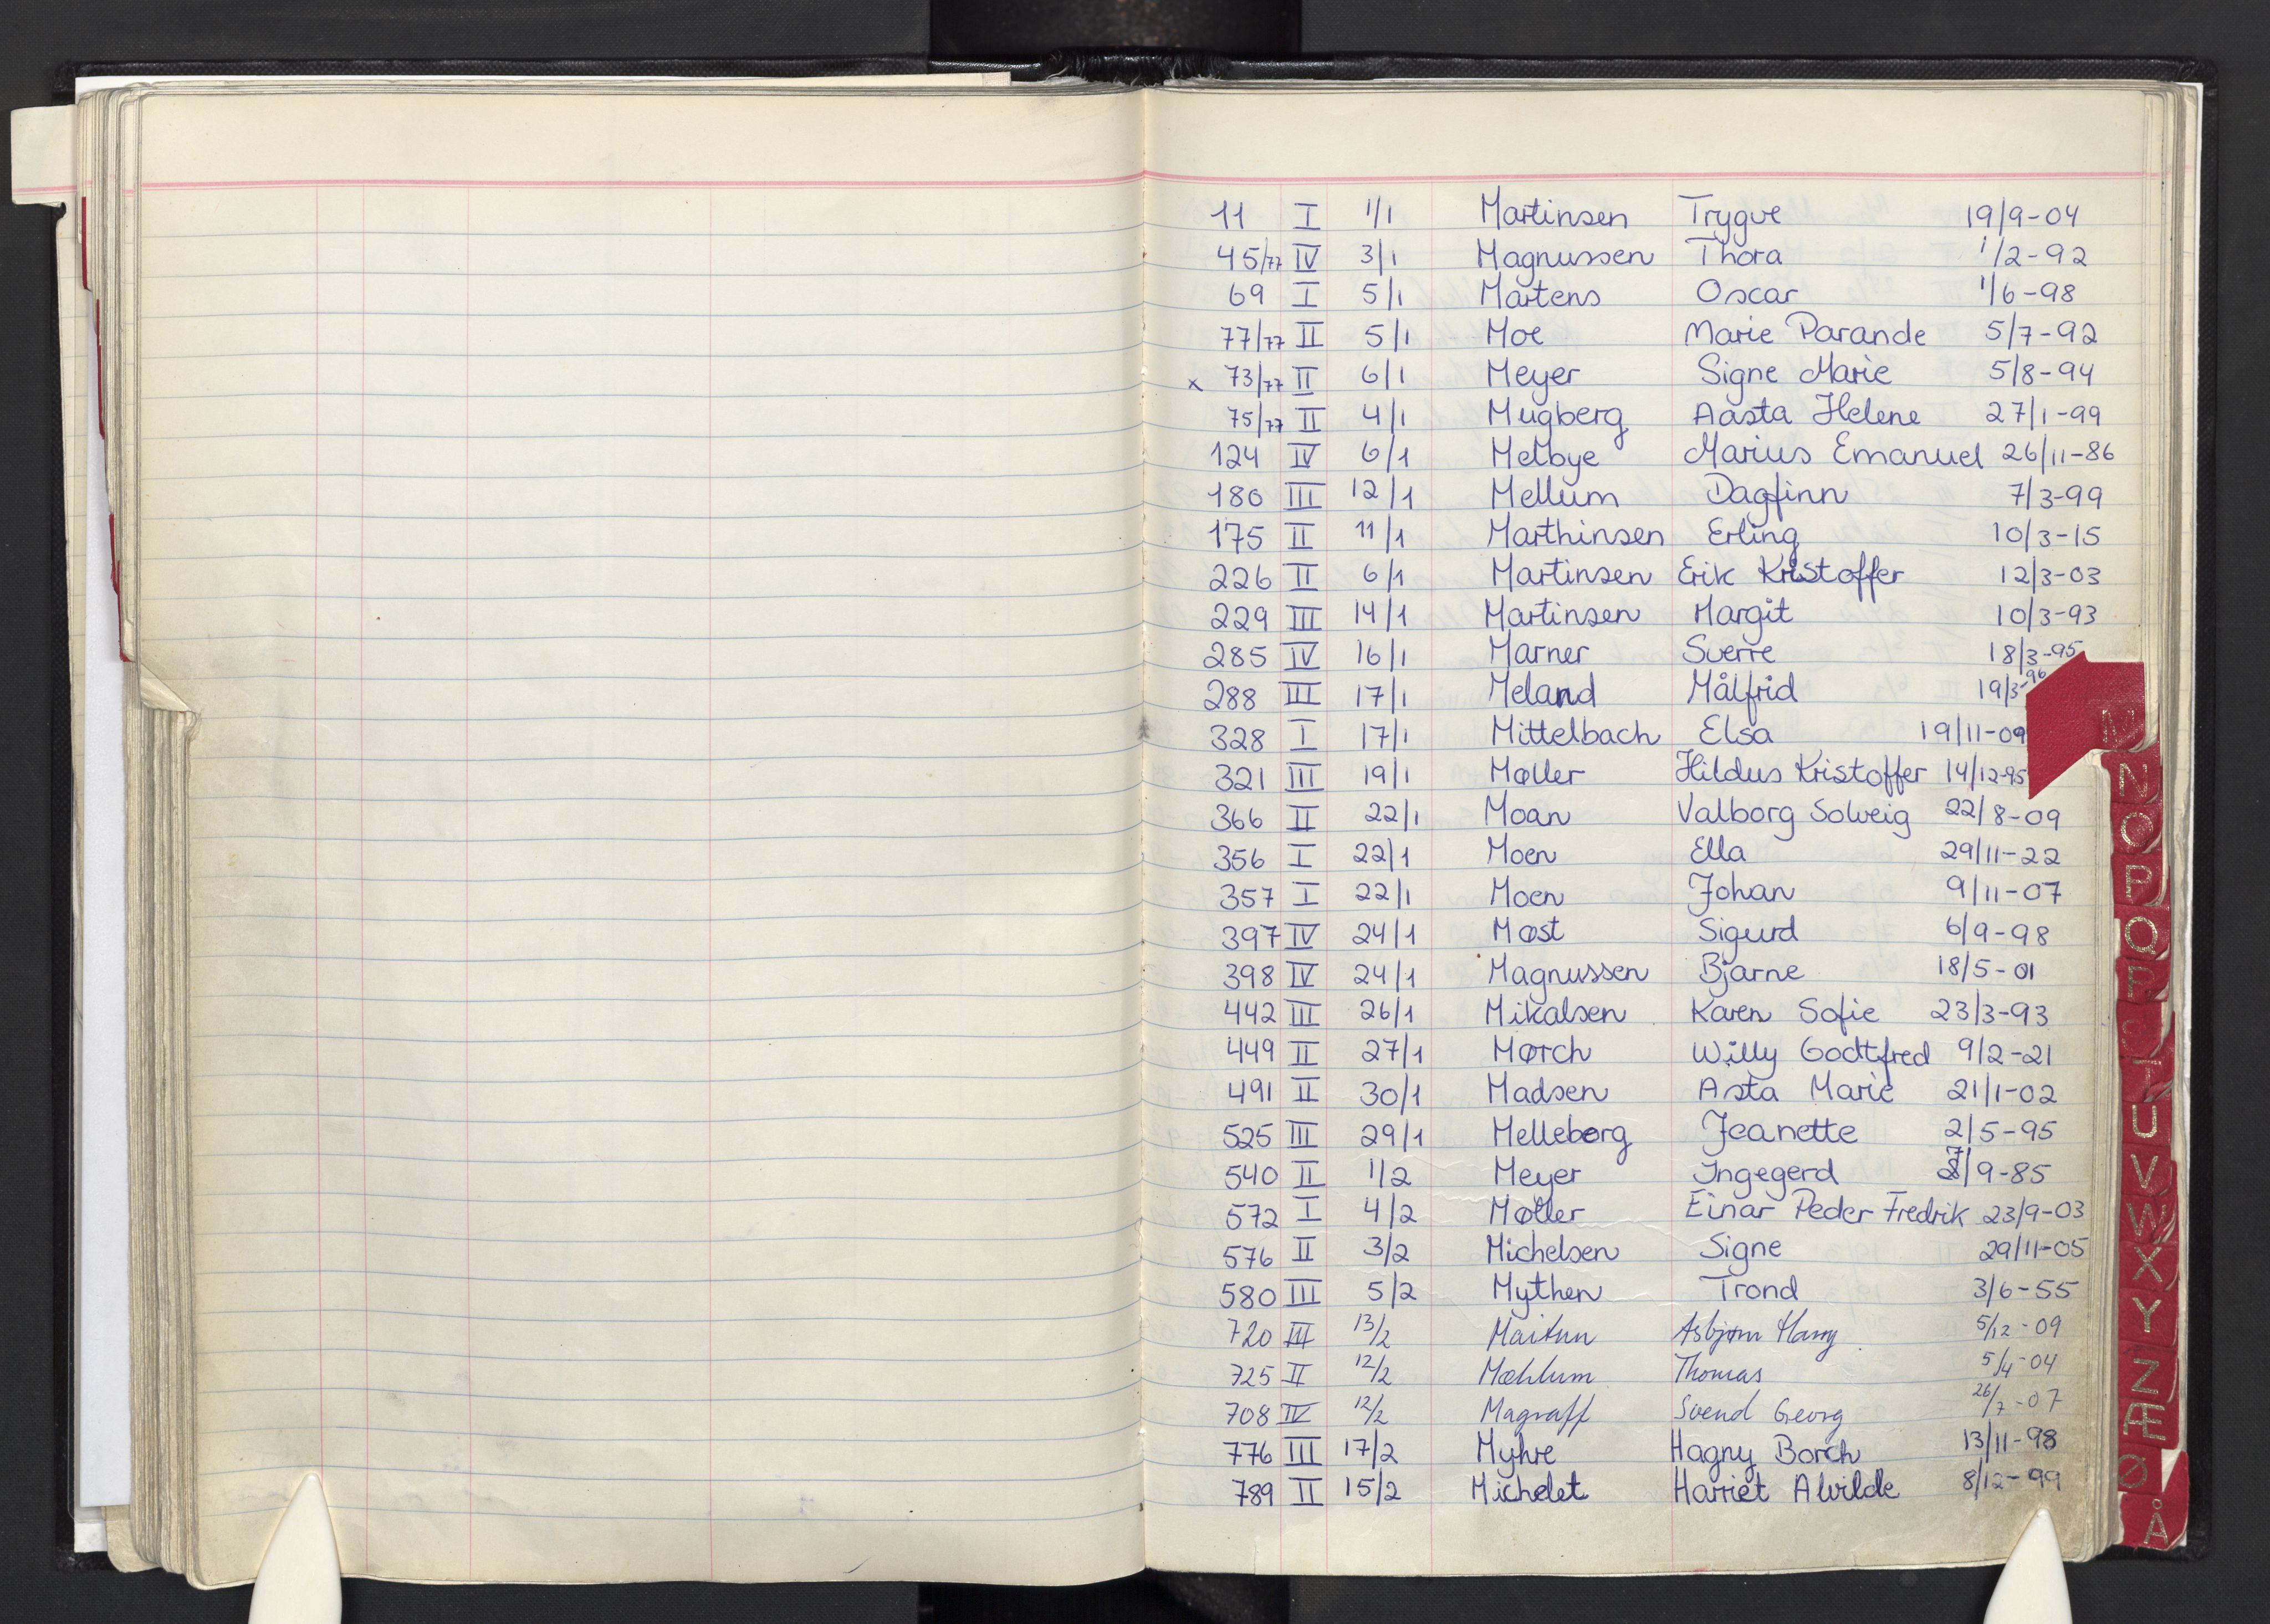 11 I 1/1 Martinsen Trygve 19/9-04
45/77 IV 3/1 Magnussen Thora 1/2-92
69 I 5/1 Martens Oscar 1/6-98
77/77 II 5/1 Moe Marie Parande 5/7-92
x 73/77 II 6/1 Meyer Signe Marie 5/8-94
75/77 II 4/1 Mugberg Aasta Helene 27/1-99
124 IV 6/1 Melbye Marius Emanuel 26/11-86
180 III 12/1 Mellum Dagfinn 7/3-99
175 II 11/1 Marthinsen Erling 10/3-15
226 II 6/1 Martinsen Erik Kristoffer 12/3-03
229 III 14/1 Martinsen Margit 10/3-93
285 IV 16/1 Marner Sverre 18/3-95
288 III 17/1 Meland Målfrid 19/3-96
M
328 I 17/1 Mittelbach Elsa 19/11-09
321 III 19/1 Møller Hildus Kristoffer 14/12-95
N
366 II 22/1 Moan Valborg Solveig 22/8-09
O
356 I 22/1 Moen Ella 29/11-22
P
357 I 22/1 Moen Johan 9/11-07
397 IV 24/1 Møst Sigurd 6/9-98
Q
398 IV 24/1 Magnussen Bjarne 18/5-01
R
442 III 26/1 Mikalsen Karen Sofie 23/3-93
449 II 27/1 Mørch Willy Godtfred 9/2-21
T
491 II 30/1 Madsen Asta Marie 21/1-02
525 III 29/1 Melleborg Jeanette 2/5-95
U
540 II 1/2 Meyer Ingegerd 27/9-85
V
572 I 4/2 Møller Einar Peder Fredrik 23/9-03
W
576 II 3/2 Michelsen Signe 29/11-05
X
580 III 5/2 Mythen Trond 3/6-55
Y
720 III 13/2 Asbjørn Harry 5/12-09
725 II 12/2 Mæhlum Thomas 5/4-04
Z
708 IV 12/2 Magraff Svend Georg 26/7-07
Æ
776 III 17/2 Myhre Hagny Borch 13/11-98
Ø
789 II 15/2 Michelet Harriet Alvilde 8/12-99
Å